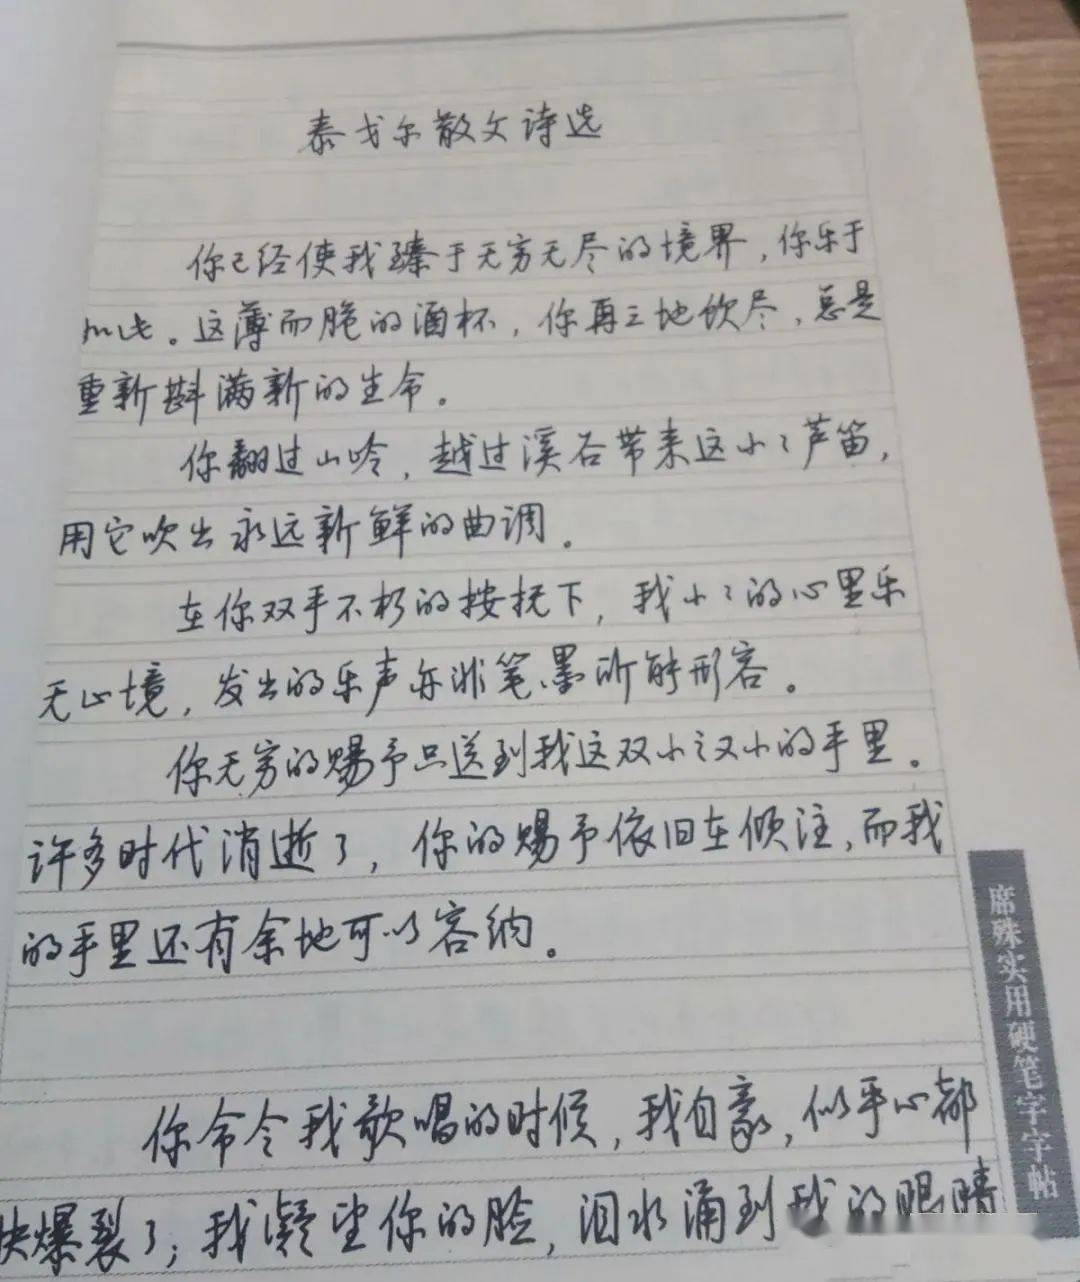 泰戈尔散文诗选
你已经使我臻于无穷无尽的境界，你乐于
此。这薄而脆的酒杯，你再三地饮尽，总是
重新斟满新的生命。
你翻过山岭，越过溪谷带来这小小芦笛，
用它吹出永远新鲜的曲调。
在你双手不朽的按抚下，我小小的心里乐
无止境，发出的乐声亦非笔墨所能形容。
你无穷的赐予只送到我这双小之又小的手里。
许多时代消逝了，你的赐予依旧在倾注，而我
的手里还有余地可以容纳。
你命令我歌唱的时候，我自豪，似乎心都
快爆裂了；我凝望你的脸，泪水涌到我的眼睛
席殊实用硬笔字字帖